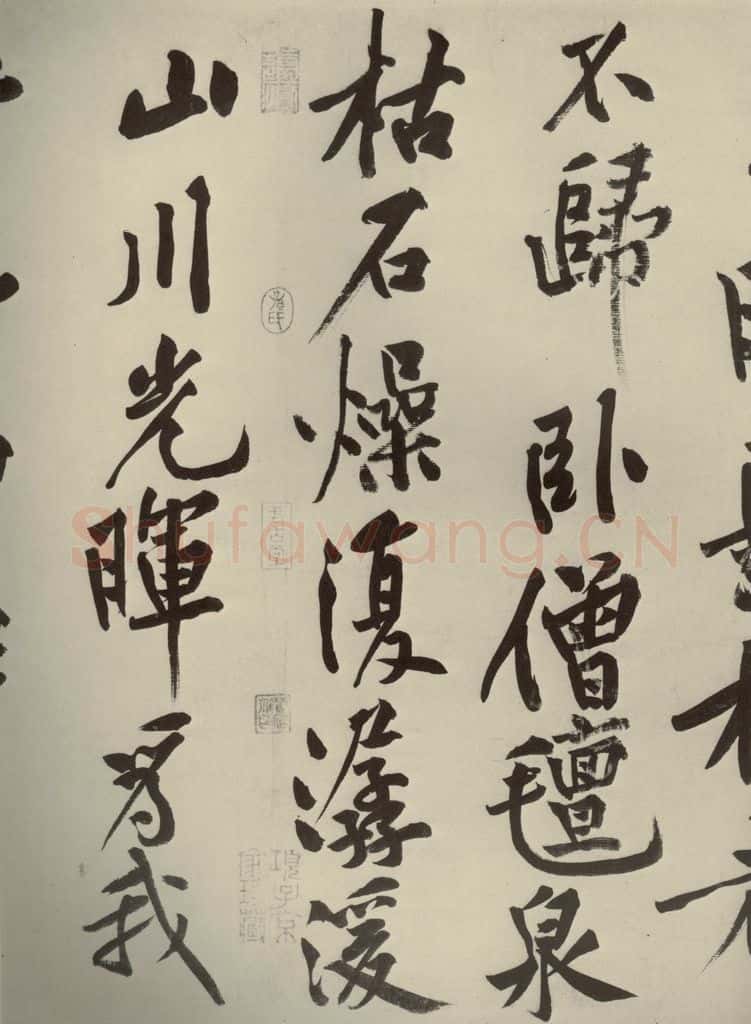 不歸卧僧氈泉
枯石燥復潺湲
山川光暉爲我
Shufawang.CN